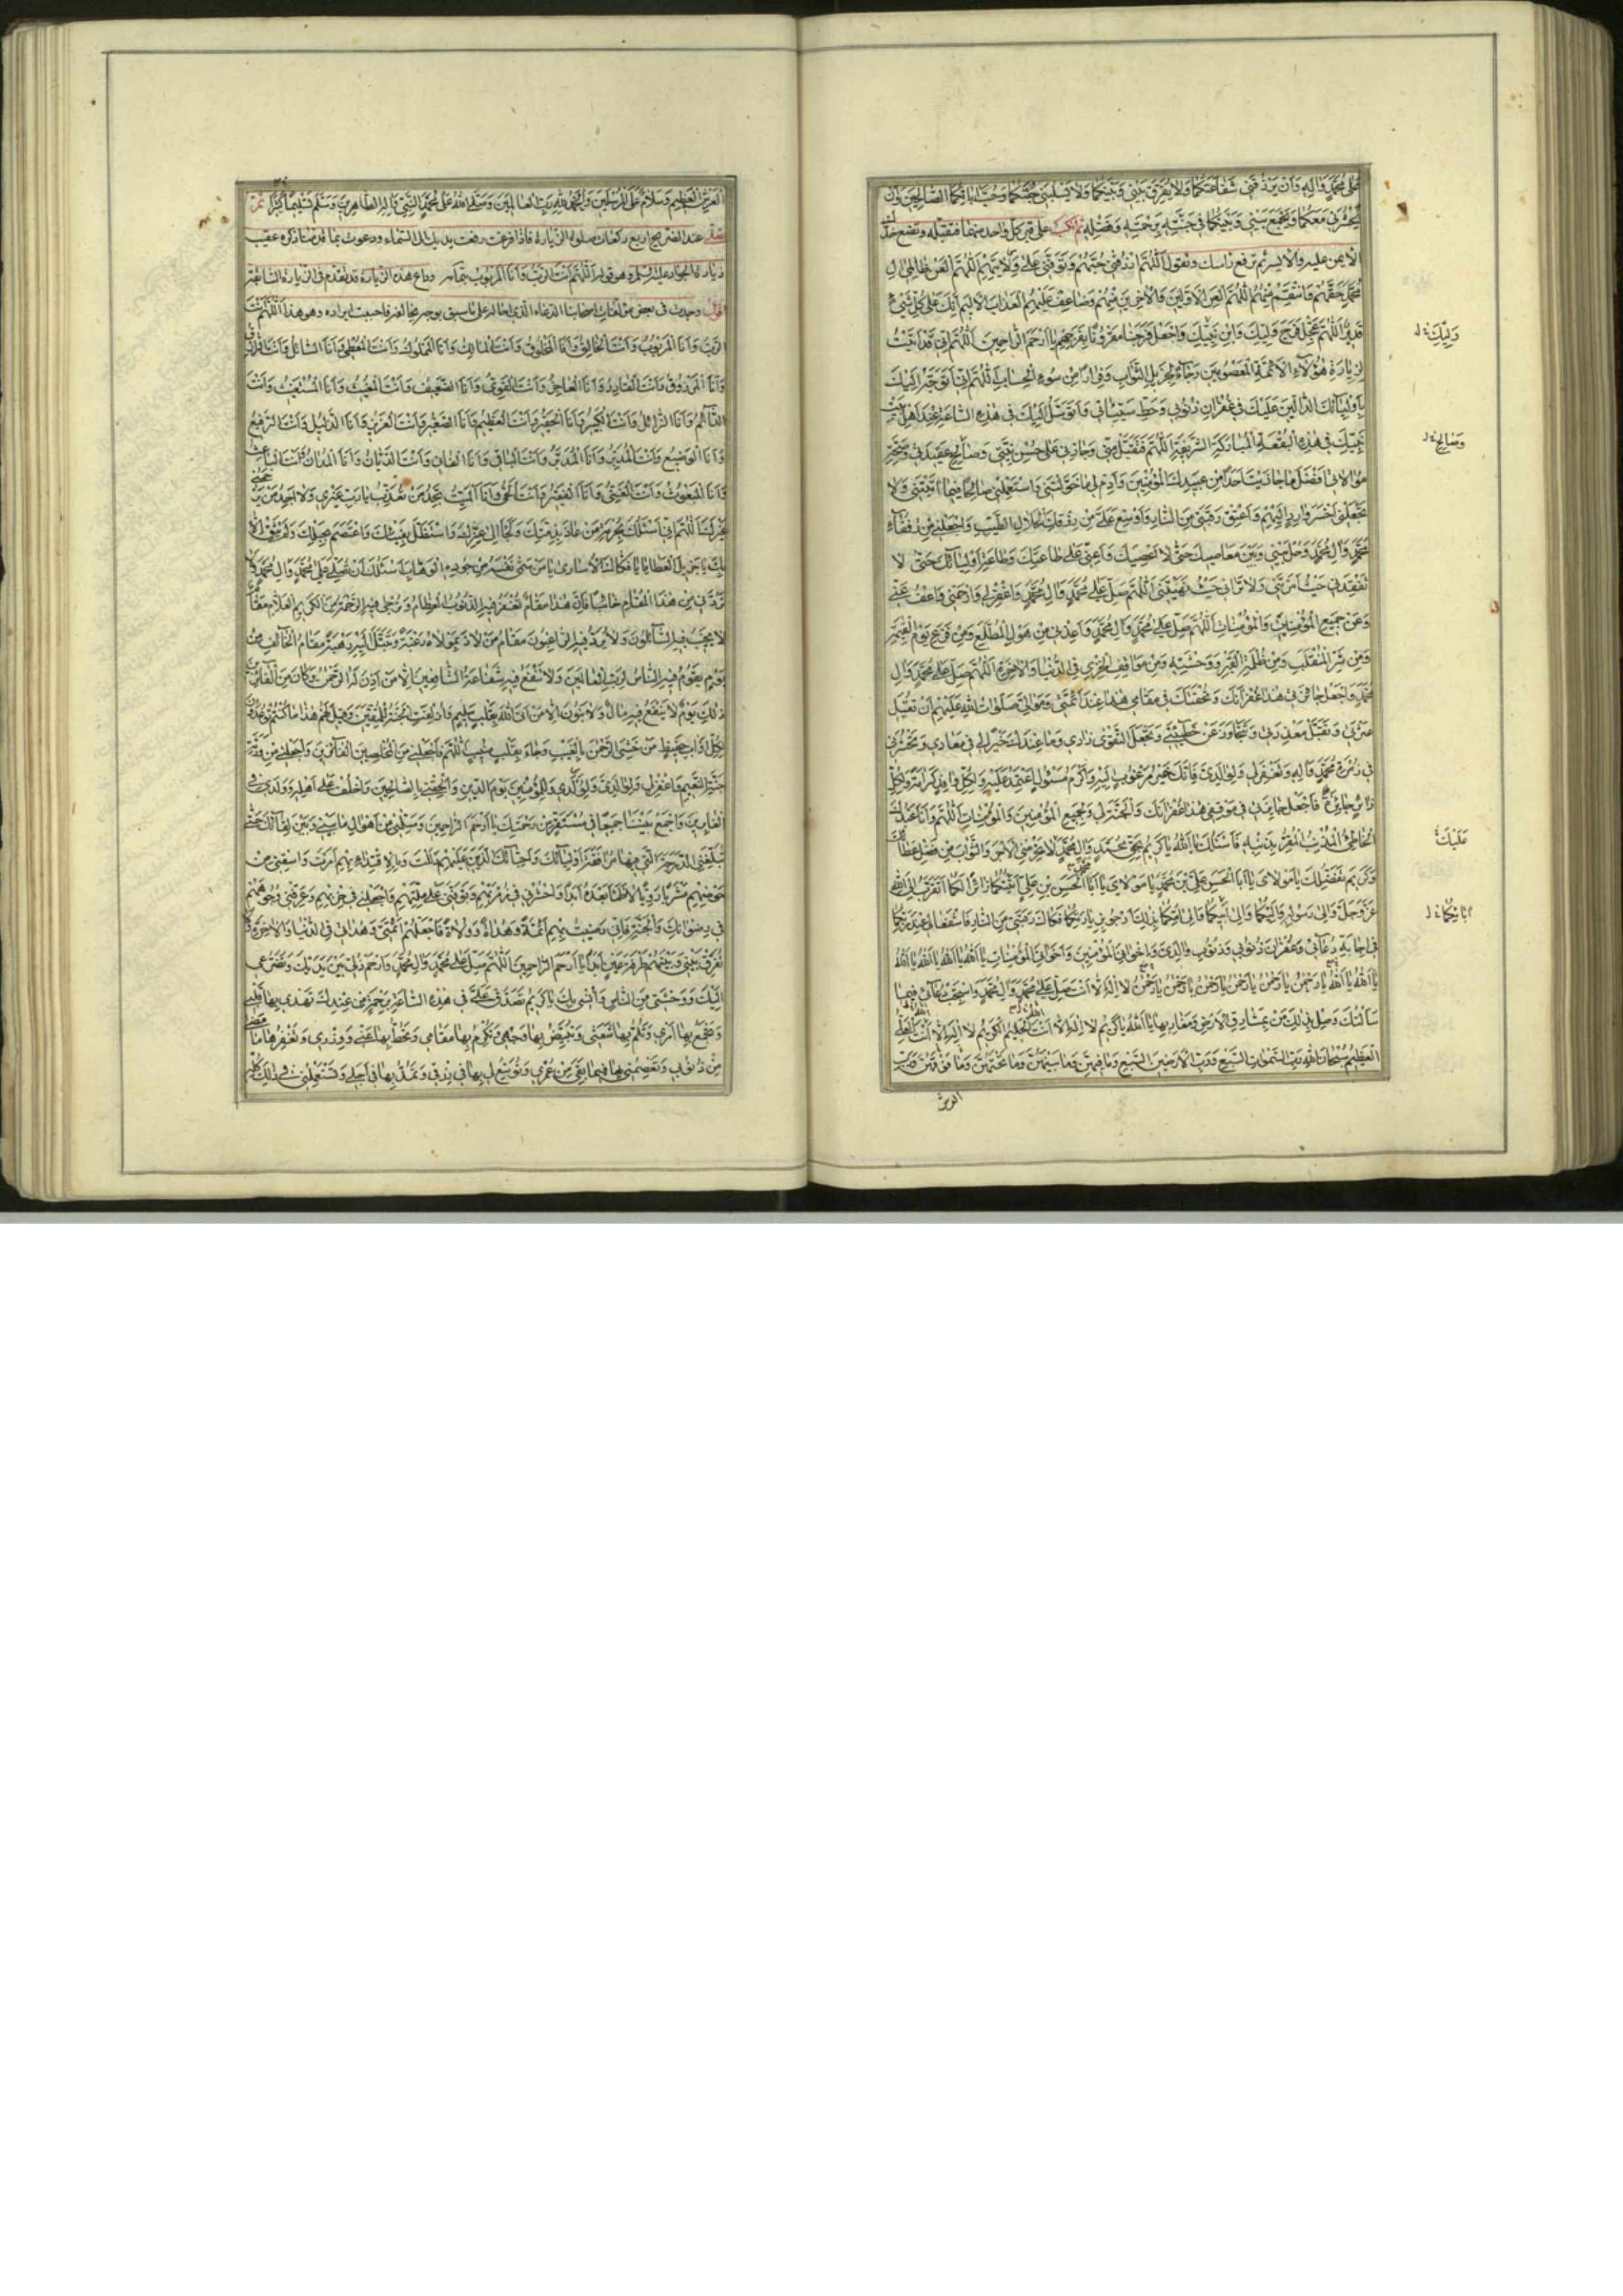 عَلٰى مُحَمَّدٍ وَاٰلِهِ وَاَنْ يَرْزُقَنِى شَفَاعَتَكُمَا وَلَا يُفَرِّقَ بَيْنِى وَبَيْنَكُمَا وَلَا يَسْلُبَنِى حُبَّكُمَا وَحُبَّ اٰبَائِكُمَا الصَّالِحِينَ وَاَنْ
يَحْشُرَنِى مَعَكُمَا وَيَجْمَعَ بَيْنِى وَبَيْنَكُمَا فِى جَنَّتِهِ بِرَحْمَتِهِ وَفَضْلِهِ ثم تنكب على قبر كل واحد منهما فتقبله وتضع خدك
الايمن عليه والايسر ثم ترفع راسك وتقول اَللّٰهُمَّ ارْزُقْنِى حُبَّهُمْ وَتَوَفَّنِى عَلٰى وَلَايَتِهِمْ اَللّٰهُمَّ الْعَنْ ظَالِمِى اٰلِ
مُحَمَّدٍ حَقَّهُمْ وَانْتَقِمْ مِنْهُمْ اَللّٰهُمَّ الْعَنِ الْاَوَّلِينَ وَالْاٰخِرِينَ مِنْهُمْ وَضَاعِفْ عَلَيْهِمُ الْعَذَابَ الْاَلِيمَ اِنَّكَ عَلٰى كُلِّ شَىْءٍ
قَدِيرٌ اَللّٰهُمَّ عَجِّلْ فَرَجَ وَلِيِّكَ وَابْنِ نَبِيِّكَ وَاجْعَلْ فَرَجَنَا مَقْرُونًا بِفَرَجِهِمْ يَا اَرْحَمَ الرَّاحِمِينَ اَللّٰهُمَّ اِنِّى قَدْ اَتَيْتُ
لِزِيَارَةِ هٰؤُلَاءِ الْاَئِمَّةِ الْمَعْصُومِينَ رَجَاءً لِجَزِيلِ الثَّوَابِ وَفِرَارًا مِنْ سُوءِ الْحِسَابِ اَللّٰهُمَّ اِنِّى اَتَوَجَّهُ اِلَيْكَ
بِاَوْلِيَائِكَ الدَّالِّينَ عَلَيْكَ فِى غُفْرَانِ ذُنُوبِى وَحَطِّ سَيِّئَاتِى وَاَتَوَسَّلُ اِلَيْكَ فِى هٰذِهِ السَّاعَةِ عِنْدَ اَهْلِ بَيْتِ
نَبِيِّكَ فِى هٰذِهِ الْبُقْعَةِ الْمُبَارَكَةِ الشَّرِيفَةِ اَللّٰهُمَّ فَتَقَبَّلْ مِنِّى وَجَازِنِى عَلٰى حُسْنِ نِيَّتِى وَصَالِحِ عَقِيدَتِى وَصِحَّةِ
مُوَالَاتِى اَفْضَلَ مَا جَازَيْتَ اَحَدًا مِنْ عَبِيدِكَ الْمُؤْمِنِينَ وَاَدِمْ لِى مَا خَوَّلْتَنِى وَاسْتَعْمِلْنِى صَالِحًا فِيمَا اٰتَيْتَنِى وَلَا
تَجْعَلْنِى اَخْسَرَ وَارِدٍ اِلَيْهِمْ وَاَعْتِقْ رَقَبَتِى مِنَ النَّارِ وَاَوْسِعْ عَلَىَّ مِنْ رِزْقِكَ الْحَلَالِ الطَّيِّبِ وَاجْعَلْنِى مِنْ رُفَقَاءِ
مُحَمَّدٍ وَاٰلِ مُحَمَّدٍ وَحُلْ بَيْنِى وَبَيْنَ مَعَاصِيكَ حَتّٰى لَا اَعْصِيَكَ وَاَعِنِّى عَلٰى طَاعَتِكَ وَطَاعَةِ اَوْلِيَائِكَ حَتّٰى لَا
تَفْقِدَنِى حَيْثُ اَمَرْتَنِى وَلَا تَرَانِى حَيْثُ نَهَيْتَنِى اَللّٰهُمَّ صَلِّ عَلٰى مُحَمَّدٍ وَاٰلِ مُحَمَّدٍ وَاغْفِرْ لِى وَارْحَمْنِى وَاعْفُ عَنِّى
وَعَنْ جَمِيعِ الْمُؤْمِنِينَ وَالْمُؤْمِنَاتِ اَللّٰهُمَّ صَلِّ عَلٰى مُحَمَّدٍ وَاٰلِ مُحَمَّدٍ وَاَعِذْنِى مِنْ هَوْلِ الْمُطَّلَعِ وَمِنْ فَزَعِ يَوْمِ الْقِيٰمَةِ
وَمِنْ شَرِّ الْمُنْقَلَبِ وَمِنْ ظُلْمَةِ الْقَبْرِ وَوَحْشَتِهِ وَمِنْ مَوَاقِفِ الْخِزْىِ فِى الدُّنْيَا وَالْاٰخِرَةِ اَللّٰهُمَّ صَلِّ عَلٰى مُحَمَّدٍ وَاٰلِ
مُحَمَّدٍ وَاجْعَلْ جَائِزَتِى فِى هٰذَا غُفْرَانَكَ وَتُحْفَتَكَ فِى مَقَامِى هٰذَا عِنْدَ اَئِمَّتِى وَمَوَالِىَّ صَلَوَاتُ اللّٰهِ عَلَيْهِمْ اَنْ تُقِيلَ
عَثْرَتِى وَتَقْبَلَ مَعْذِرَتِى وَتَتَجَاوَزَ عَنْ خَطِيئَتِى وَتَجْعَلَ التَّقْوٰى زَادِى وَمَا عِنْدَكَ خَيْرًا لِى فِى مَعَادِى وَتَحْشُرَنِى
فِى زُمْرَةِ مُحَمَّدٍ وَاٰلِهِ وَتَغْفِرَ لِى وَلِوَالِدَىَّ فَاِنَّكَ خَيْرُ مَرْغُوبٍ اِلَيْهِ وَاَكْرَمُ مَسْئُولٍ اعْتُمِدَ عَلَيْهِ وَلِكُلِّ وَافِدٍ كَرَامَةٌ وَلِكُلِّ
زَائِرٍ جَائِزَةٌ فَاجْعَلْ جَائِزَتِى فِى مَوْقِفِى هٰذَا غُفْرَانَكَ وَالْجَنَّةَ لِى وَلِجَمِيعِ الْمُؤْمِنِينَ وَالْمُؤْمِنَاتِ اَللّٰهُمَّ وَاَنَا عَبْدُكَ
الْخَاطِئُ الْمُذْنِبُ الْمُقِرُّ بِذَنْبِهِ فَاَسْئَلُكَ يَا اَللّٰهُ يَا كَرِيمُ بِحَقِّ مُحَمَّدٍ وَاٰلِ مُحَمَّدٍ لَا تَحْرِمْنِى الْاَجْرَ وَالثَّوَابَ مِنْ فَضْلِ عَطَائِكَ
وَكَرِيمِ تَفَضُّلِكَ يَا مَوْلَاىَ يَا اَبَا الْحَسَنِ عَلِىَّ بْنَ مُحَمَّدٍ يَا مَوْلَاىَ يَا اَبَا مُحَمَّدٍ الْحَسَنَ بْنَ عَلِىٍّ اَتَيْتُكُمَا زَائِرًا لَكُمَا اَتَقَرَّبُ اِلَى اللّٰهِ
عَزَّ وَجَلَّ وَاِلٰى رَسُولِهِ وَاِلَيْكُمَا وَاِلٰى اَبِيكُمَا وَاِلٰى اُمِّكُمَا بِذٰلِكَ اَرْجُو بِزِيَارَتِكُمَا فَكَاكَ رَقَبَتِى مِنَ النَّارِ فَاشْفَعَا لِى عِنْدَ رَبِّكُمَا
فِى اِجَابَةِ دُعَائِى وَغُفْرَانِ ذُنُوبِى وَذُنُوبِ وَالِدَىَّ وَاِخْوَانِىَ الْمُؤْمِنِينَ وَاَخَوَاتِىَ الْمُؤْمِنَاتِ يَا اَللّٰهُ يَا اَللّٰهُ يَا اَللّٰهُ يَا اَللّٰهُ
يَا اَللّٰهُ يَا اَللّٰهُ يَا رَحْمٰنُ يَا رَحْمٰنُ يَا رَحْمٰنُ يَا رَحْمٰنُ يَا رَحْمٰنُ لَا اِلٰهَ اِلَّا اَنْتَ صَلِّ عَلٰى مُحَمَّدٍ وَاٰلِ مُحَمَّدٍ وَاسْتَجِبْ دُعَائِى فِيمَا
سَاَلْتُكَ وَصِلْ بِذٰلِكَ مَنْ بِمَشَارِقِ الْاَرْضِ وَمَغَارِبِهَا يَا اَللّٰهُ يَا كَرِيمُ لَا اِلٰهَ اِلَّا اللّٰهُ الْحَلِيمُ الْكَرِيمُ لَا اِلٰهَ اِلَّا اللّٰهُ الْعَلِىُّ
الْعَظِيمُ سُبْحَانَ اللّٰهِ رَبِّ السَّمٰوَاتِ السَّبْعِ وَرَبِّ الْاَرَضِينَ السَّبْعِ وَمَا فِيهِنَّ وَمَا بَيْنَهُنَّ وَمَا تَحْتَهُنَّ وَمَا فَوْقَهُنَّ وَرَبِّ
العرش
وَلِيِّكَ
وَصَالِحِ
عَلَيْكَ
اٰبَائِكُمَا
الْعَرْشِ الْعَظِيمِ وَسَلَامٌ عَلَى الْمُرْسَلِينَ وَالْحَمْدُ لِلّٰهِ رَبِّ الْعَالَمِينَ وَصَلَّى اللّٰهُ عَلٰى مُحَمَّدٍ النَّبِىِّ وَاٰلِهِ الطَّاهِرِينَ وَسَلَّمَ تَسْلِيمًا كَثِيرًا ثم
تصلى عند الضريح اربع ركعات صلوة الزيارة فاذا فرغت رفعت يديك الى السماء ودعوت بما قدمنا ذكره عقيب
زيارة الجواد عليه السلام وهو قوله اَللّٰهُمَّ اَنْتَ الرَّبُّ وَاَنَا الْمَرْبُوبُ بتمامه وداع هذه الزيارة قد تقدم فى الزيارة السابقة
اقول وجدت فى بعض مؤلفات اصحابنا الدعاء الذى احاله على ما سبق بوجه يخالفه فاحببت ايراده وهو هذا اَللّٰهُمَّ اَنْتَ
الرَّبُّ وَاَنَا الْمَرْبُوبُ وَاَنْتَ الْخَالِقُ وَاَنَا الْمَخْلُوقُ وَاَنْتَ الْمَالِكُ وَاَنَا الْمَمْلُوكُ وَاَنْتَ الْمُعْطِى وَاَنَا السَّائِلُ وَاَنْتَ الرَّازِقُ
وَاَنَا الْمَرْزُوقُ وَاَنْتَ الْقَادِرُ وَاَنَا الْعَاجِزُ وَاَنْتَ الْقَوِىُّ وَاَنَا الضَّعِيفُ وَاَنْتَ الْمُغِيثُ وَاَنَا الْمُسْتَغِيثُ وَاَنْتَ
الدَّائِمُ وَاَنَا الزَّائِلُ وَاَنْتَ الْكَبِيرُ وَاَنَا الْحَقِيرُ وَاَنْتَ الْعَظِيمُ وَاَنَا الصَّغِيرُ وَاَنْتَ الْعَزِيزُ وَاَنَا الذَّلِيلُ وَاَنْتَ الرَّفِيعُ
وَاَنَا الْوَضِيعُ وَاَنْتَ الْمُدَبِّرُ وَاَنَا الْمُدَبَّرُ وَاَنْتَ الْبَاقِى وَاَنَا الْفَانِى وَاَنْتَ الدَّيَّانُ وَاَنَا الْمُدَانُ وَاَنْتَ الْبَاعِثُ
وَاَنَا الْمَبْعُوثُ وَاَنْتَ الْغَنِىُّ وَاَنَا الْفَقِيرُ وَاَنْتَ الْحَىُّ وَاَنَا الْمَيِّتُ تَجِدُ مَنْ تُعَذِّبُ يَا رَبِّ غَيْرِى وَلَا اَجِدُ مَنْ يَرْحَمُنِى
غَيْرَكَ اَللّٰهُمَّ اِنِّى اَسْئَلُكَ بِحُرْمَةِ مَنْ عَاذَ بِذِمَّتِكَ وَلَجَأَ اِلٰى عِزِّكَ وَاسْتَظَلَّ بِفَيْئِكَ وَاعْتَصَمَ بِحَبْلِكَ وَلَمْ يَثِقْ اِلَّا
بِكَ يَا جَزِيلَ الْعَطَايَا يَا فَكَّاكَ الْاُسَارٰى يَا مَنْ سَمّٰى نَفْسَهُ مِنْ جُودِهِ الْوَهَّابَ اَسْئَلُكَ اَنْ تُصَلِّىَ عَلٰى مُحَمَّدٍ وَاٰلِ مُحَمَّدٍ وَلَا
تَرُدَّنِى مِنْ هٰذَا الْمَقَامِ خَائِبًا فَاِنَّ هٰذَا مَقَامٌ تُغْفَرُ فِيهِ الذُّنُوبُ الْعِظَامُ وَتُرْجٰى فِيهِ الرَّحْمَةُ مِنَ الْكَرِيمِ الْعَلَّامِ مَقَامٌ
لَا يَخِيبُ فِيهِ السَّائِلُونَ وَلَا يُرَدُّ فِيهِ الرَّاغِبُونَ مَقَامُ مَنْ لَاذَ بِمَوْلَاهُ رَغْبَةً وَتَبَتَّلَ اِلَيْهِ رَهْبَةً مَقَامُ الْخَائِفِ مِنْ
يَوْمٍ يَقُومُ فِيهِ النَّاسُ لِرَبِّ الْعَالَمِينَ وَلَا تَنْفَعُ فِيهِ شَفَاعَةُ الشَّافِعِينَ اِلَّا مَنْ اَذِنَ لَهُ الرَّحْمٰنُ وَكَانَ مِنَ الْفَائِزِينَ
ذٰلِكَ يَوْمٌ لَا يَنْفَعُ فِيهِ مَالٌ وَلَا بَنُونَ اِلَّا مَنْ اَتَى اللّٰهَ بِقَلْبٍ سَلِيمٍ وَاُزْلِفَتِ الْجَنَّةُ لِلْمُتَّقِينَ وَقِيلَ لَهُمْ هٰذَا مَا كُنْتُمْ تُوعَدُونَ
لِكُلِّ اَوَّابٍ حَفِيظٍ مَنْ خَشِىَ الرَّحْمٰنَ بِالْغَيْبِ وَجَاءَ بِقَلْبٍ مُنِيبٍ اَللّٰهُمَّ فَاجْعَلْنِى مِنَ الْمُخْلَصِينَ الْفَائِزِينَ وَاجْعَلْنِى مِنْ وَرَثَةِ
جَنَّةِ النَّعِيمِ وَاغْفِرْ لِى وَلِوَالِدَىَّ وَلِوُلْدِى وَالْمُؤْمِنِينَ يَوْمَ الدِّينِ وَاَلْحِقْنِى بِالصَّالِحِينَ وَاخْلُفْ عَلٰى اَهْلِى وَوُلْدِى فِى
الْغَابِرِينَ وَاجْمَعْ بَيْنَنَا جَمِيعًا فِى مُسْتَقَرٍّ مِنْ رَحْمَتِكَ يَا اَرْحَمَ الرَّاحِمِينَ وَسَلِّمْنِى مِنْ اَهْوَالِ مَا بَيْنِى وَبَيْنَ لِقَائِكَ حَتّٰى
تُبَلِّغَنِى الدَّرَجَةَ الَّتِى فِيهَا مُرَافَقَةُ اَوْلِيَائِكَ وَاَحِبَّائِكَ الَّذِينَ عَلَيْهِمْ دَلَلْتَ وَبِالْاِقْتِدَاءِ بِهِمْ اَمَرْتَ وَاسْقِنِى مِنْ
حَوْضِهِمْ مَشْرَبًا رَوِيًّا لَا ظَمَأَ بَعْدَهُ اَبَدًا وَاحْشُرْنِى فِى زُمْرَتِهِمْ وَتَوَفَّنِى عَلٰى مِلَّتِهِمْ وَاجْعَلْنِى فِى حِزْبِهِمْ وَعَرِّفْنِى وُجُوهَهُمْ
فِى رِضْوَانِكَ وَالْجَنَّةِ فَاِنِّى رَضِيتُ بِهِمْ اَئِمَّةً وَهُدَاةً وَوُلَاةً فَاجْعَلْهُمْ اَئِمَّتِى وَهُدَاتِى فِى الدُّنْيَا وَالْاٰخِرَةِ وَلَا
تُفَرِّقْ بَيْنِى وَبَيْنَهُمْ طَرْفَةَ عَيْنٍ اَبَدًا يَا اَرْحَمَ الرَّاحِمِينَ اَللّٰهُمَّ صَلِّ عَلٰى مُحَمَّدٍ وَاٰلِ مُحَمَّدٍ وَارْحَمْ ذُلِّى بَيْنَ يَدَيْكَ وَتَضَرُّعِى
اِلَيْكَ وَوَحْشَتِى مِنَ النَّاسِ وَاُنْسِى بِكَ يَا كَرِيمُ تَصَدَّقْ عَلَىَّ فِى هٰذِهِ السَّاعَةِ بِرَحْمَةٍ مِنْ عِنْدِكَ تَهْدِى بِهَا قَلْبِى
وَتَجْمَعُ بِهَا اَمْرِى وَتَلُمُّ بِهَا شَعَثِى وَتُبَيِّضُ بِهَا وَجْهِى وَتُكْرِمُ بِهَا مَقَامِى وَتَحُطُّ بِهَا عَنِّى وِزْرِى وَتَغْفِرُ بِهَا مَا مَضٰى
مِنْ ذُنُوبِى وَتَعْصِمُنِى بِهَا فِيمَا بَقِىَ مِنْ عُمْرِى وَتُوَسِّعُ لِى بِهَا فِى رِزْقِى وَتَمُدُّ بِهَا فِى اَجَلِى وَتَسْتَعْمِلُنِى فِى ذٰلِكَ كُلِّهِ